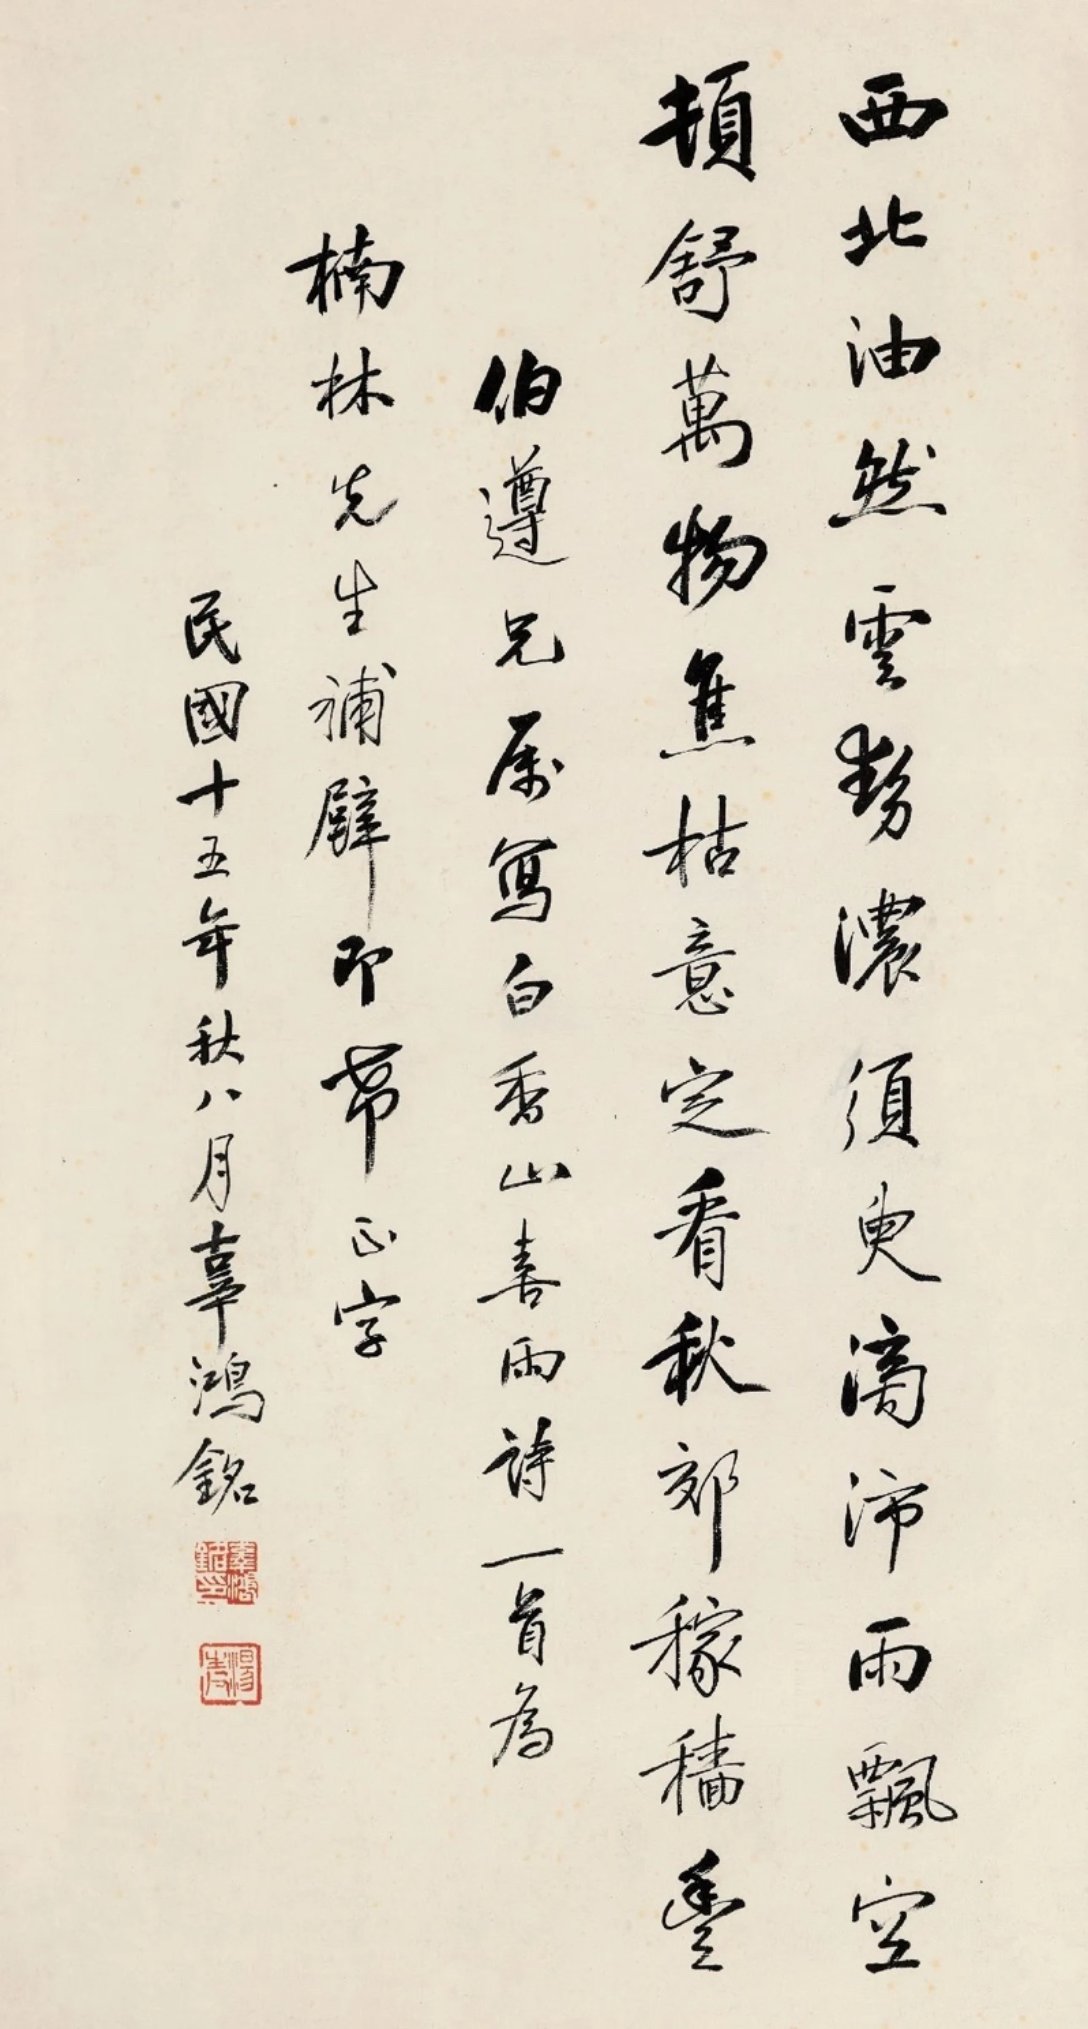 西北油然雲勢濃須臾滂沛雨飄空
頓舒萬物焦枯意定看秋郊稼穡豐
伯遵兄属寫白香山喜雨詩一首為
楠林先生補壁即希正字
民國十五年秋八月辜鴻銘
辜鴻銘印
湯生